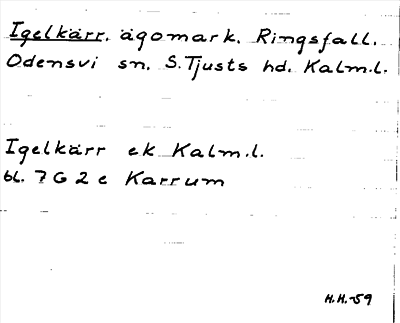 Igelkärr. ägomark. Ringsfall.
Odensvi sn. S. Tjusts hd. Kalm.l.
Igelkärr ek Kalm.l.
bl. 7 G 2 e Karrum
H.H.-59